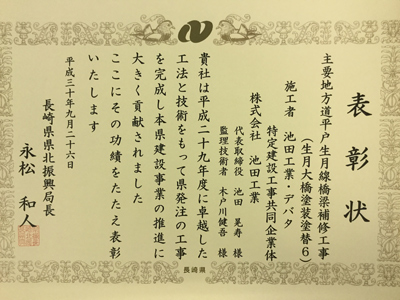 表彰状
主要地方道平戸生月線橋梁補修工事
(生月大橋塗装塗替6)
施工者 池田工業・デバタ
特定建設工事共同企業体
株式会社 池田工業
代表取締役 池田 晃寿 様
監理技術者 木戸川健吾 様
貴社は平成二十九年度に卓越した
工法と技術をもって県発注の工事
を完成し本県建設事業の推進に
大きく貢献されました
ここにその功績をたたえ表彰
いたします
平成三十年九月二十六日
長崎県県北振興局長
永松 和人
長崎県